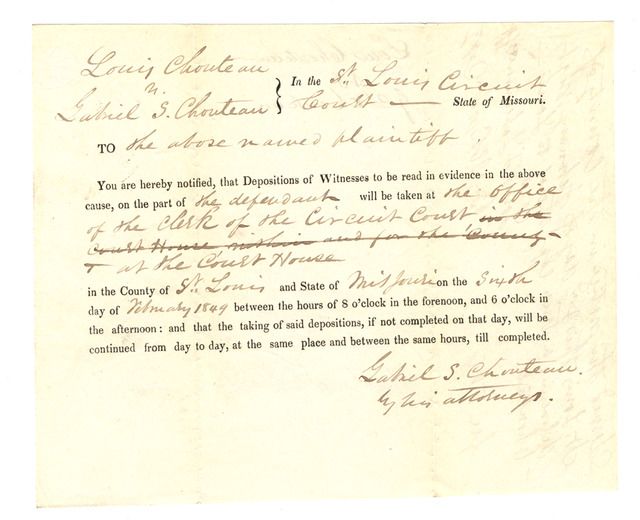 Louis Chouteau
vs.
Gabriel S. Chouteau
In the St. Louis Circuit
Court — State of Missouri.
TO the above named plaintiff.
You are hereby notified, that Depositions of Witnesses to be read in evidence in the above
cause, on the part of the defendant will be taken at the office
of the Clerk of the Circuit Court in the
Court House within and for the County
at the Court House
in the County of St. Louis and State of Missouri on the Sixth
day of February 1849 between the hours of 8 o'clock in the forenoon, and 6 o'clock in
the afternoon: and that the taking of said depositions, if not completed on that day, will be
continued from day to day, at the same place and between the same hours, till completed.
Gabriel S. Chouteau.
By his attorneys.